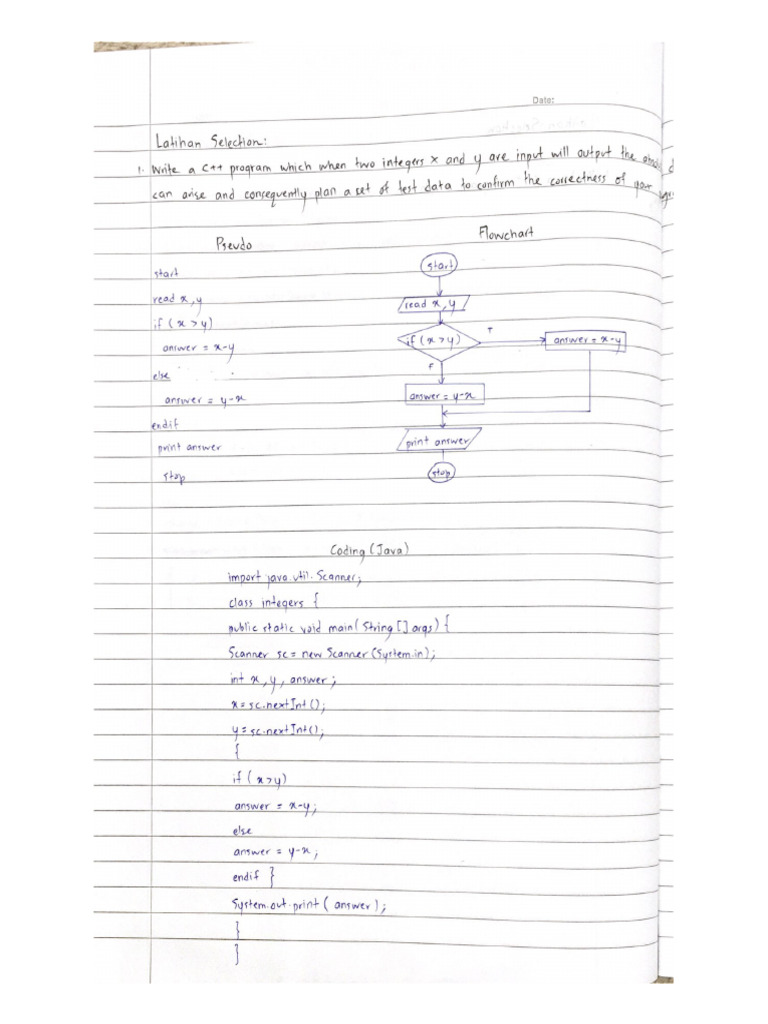 Date:
Latihan Selection:
1. Write a C++ program which when two integers x and y are input will output the
can arise and consequently plan a set of test data to confirm the correctness of your
Psevdo
Flowchart
start
read x, y
if (x > y)
answer = x-y
else
answer = y-x
endif
print answer
stop
start
read x, y
if (x > y)
T
answer = x-y
F
answer = y-x
print answer
stop
Coding (Java)
import java.util.Scanner;
class integers {
public static void main(String [] args) {
Scanner sc = new Scanner(System.in);
int x, y, answer;
x = sc.nextInt ();
y = sc.nextInt();
{
if (x>y)
answer = x-y;
else
answer = y-x;
endif }
System.out.print ( answer );
}
}